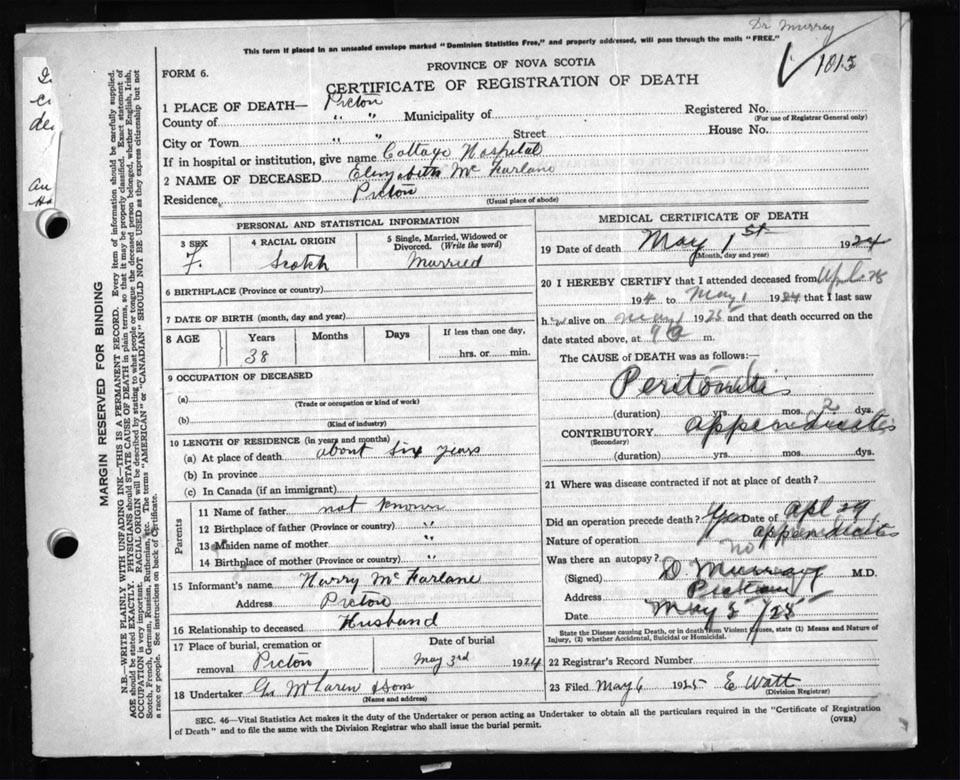 Dr Murray
This form if placed in an unsealed envelope marked "Dominion Statistics Free," and property addressed, will pass through the mails "FREE."
1815
PROVINCE OF NOVA SCOTIA
FORM 6.
CERTIFICATE OF REGISTRATION OF DEATH
1 PLACE OF DEATH— Picton
County of " " Municipality of Registered No.
(For use of Registrar General only)
City or Town " " Street House No.
If in hospital or institution, give name Cottage Hospital
2 NAME OF DECEASED Elizabeth Mc Farlane
Residence Picton
(Usual place of abode)
PERSONAL AND STATISTICAL INFORMATION
3 SEX F.
4 RACIAL ORIGIN Scotch
5 Single, Married, Widowed or Divorced. (Write the word) Married
6 BIRTHPLACE (Province or country)
7 DATE OF BIRTH (month, day and year)
8 AGE Years Months Days If less than one day,
38 hrs. or min.
9 OCCUPATION OF DECEASED
(a)
(Trade or occupation or kind of work)
(b)
(Kind of industry)
10 LENGTH OF RESIDENCE (in years and months)
(a) At place of death about six years
(b) In province
(c) In Canada (if an immigrant)
Parents
11 Name of father not known
12 Birthplace of father (Province or country) "
13 Maiden name of mother "
14 Birthplace of mother (Province or country) "
15 Informant's name Harry Mc Farlane
Address Picton
16 Relationship to deceased Husband
17 Place of burial, cremation or removal Picton
Date of burial May 3rd 1924
18 Undertaker Geo McLaren & Son
(Name and address)
MEDICAL CERTIFICATE OF DEATH
19 Date of death May 1st 1924
(Month, day and year)
20 I HEREBY CERTIFY that I attended deceased from Apl. 28
194 to May 1 1924 that I last saw
h alive on May 1 1925 and that death occurred on the
date stated above, at 9 a m.
The CAUSE of DEATH was as follows:—
Peritonitis
(duration) yrs. mos. 2 dys.
CONTRIBUTORY appendicites
(Secondary)
(duration) yrs. mos. dys.
21 Where was disease contracted if not at place of death?
Did an operation precede death? Yes Date of Apl 29
Nature of operation appendicates
Was there an autopsy? no
(Signed) D Murray M.D.
Address Pictou
Date May 5/25
State the Disease causing Death, or in death from Violent Causes, state (1) Means and Nature of
Injury, (2) whether Accidental, Suicidal or Homicidal.
22 Registrar's Record Number
23 Filed May 6 1925 E Watt
(Division Registrar)
SEC. 46—Vital Statistics Act makes it the duty of the Undertaker or person acting as Undertaker to obtain all the particulars required in the "Certificate of Registration
of Death" and to file the same with the Division Registrar who shall issue the burial permit. (OVER)
MARGIN RESERVED FOR BINDING
N.B.—WRITE PLAINLY WITH UNFADING INK—THIS IS A PERMANENT RECORD. Every item of information should be carefully supplied.
AGE should be stated EXACTLY. PHYSICIANS should STATE CAUSE OF DEATH in plain terms, so that it may be properly classified. Exact statement of
OCCUPATION is very important. RACIAL ORIGIN will be described by stating to what people or tongue the deceased person belonged, whether English, Irish,
Scotch, French, German, Russian, Ruthenian, etc. The terms "AMERICAN" or "CANADIAN" SHOULD NOT BE USED as they express citizenship but not
a race or people. See instructions on back of Certificate.